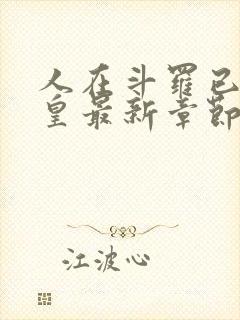 人在斗羅已
皇最新章節
江波心